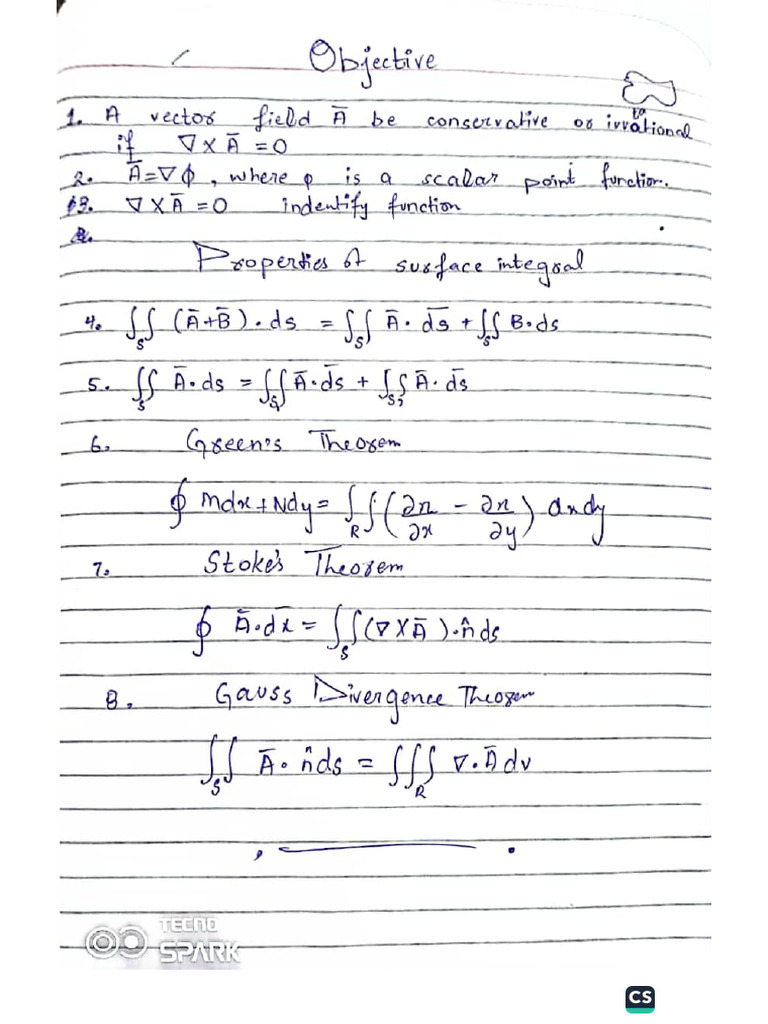 Objective
1. A vector field Ā be conservative or irrotational
if ∇ × Ā = 0
2. Ā = ∇ϕ, where φ is a scalar point function.
3. ∇ × Ā = 0 indentify function
Properties of surface integral
4. ∬_S (Ā + B̄) . ds = ∬_S Ā . d̅s̅ + ∬_S B . ds
5. ∬_S Ā . ds = ∬_S₁ Ā . d̅s̅ + ∬_S₂ Ā . d̅s̅
6. Green's Theorem
∮ Mdx + Ndy = ∬_R (∂n/∂x - ∂n/∂y) dxdy
7. Stoke's Theorem
∮ Ā . d̅x̅ = ∬_S (∇ × Ā) . n̂ ds
8. Gauss Divergence Theorem
∬_S Ā . n̂ ds = ∭_R ∇ . Ā dv
TECNO
SPARK
CS